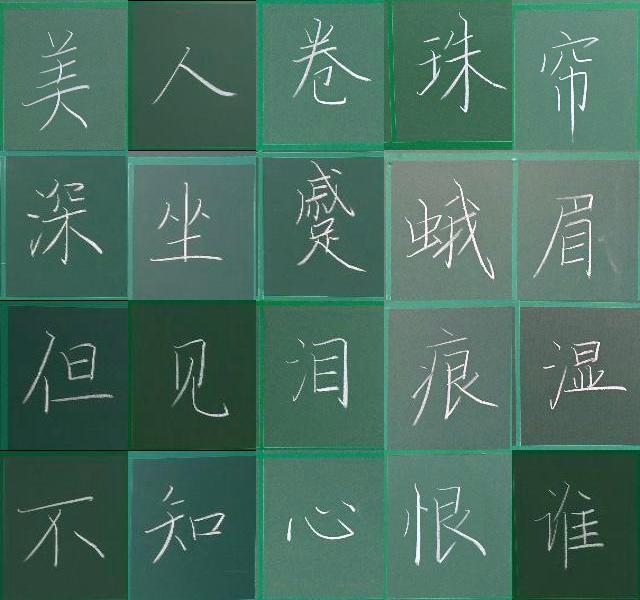 美人卷珠帘
深坐蹙蛾眉
但见泪痕湿
不知心恨谁